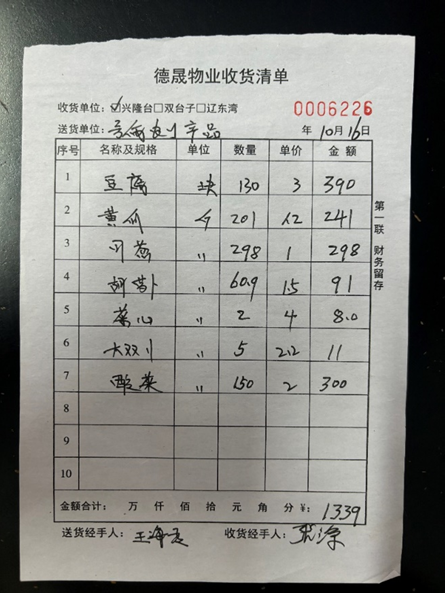 德晟物业收货清单
收货单位：☑兴隆台□双台子□辽东湾 0006226
送货单位： 年 10月16日
序号 名称及规格 单位 数量 单价 金额
1 豆腐 块 130 3 390
2 黄瓜 斤 201 1.2 241
3 〃 298 1 298
4 胡萝卜 〃 60.9 1.5 91
5 〃 2 4 8.0
6 〃 5 2.2 11
7 酸菜 〃 150 2 300
8
9
10
金额合计： 万 仟 佰 拾 元 角 分 ¥：1339
送货经手人： 收货经手人：
第一联 财务留存